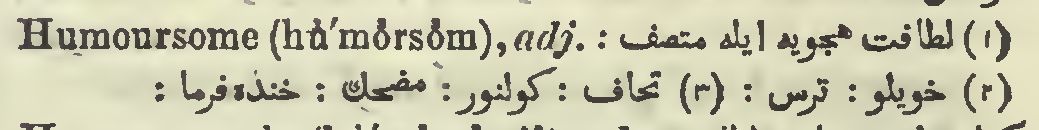 Humoursome (hŭ′mŏrsŏm), adj. : (١) لطافت هجویه ایله متصف
(٢) خویلو : ترس : (٣) تحاف : كولنور : مضحك : خنده فرما :